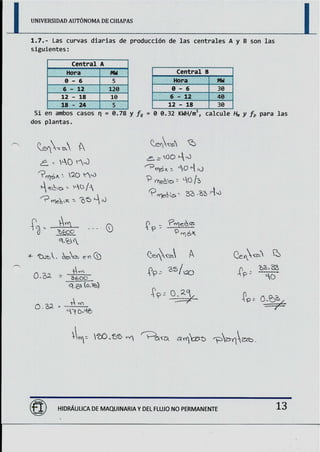 UNIVERSIDAD AUTÓNOMA DE CHIAPAS
1.7.- Las curvas diarias de producción de las centrales A y B son las
siguientes:
Central A
Hora MW
0 - 6 5
6 - 12 120
12 - 18 10
18 - 24 5
Central B
Hora MW
0 - 6 30
6 - 12 40
12 - 18 30
Si en ambos casos η = 0.78 y f_g = 0 0.32 KWH/m³, calcule H_N y f_P para las
dos plantas.
Central A
E = 140 MW
Pmáx = 120 MW
Media = 140/4
Pmedia = 35 MW
Central B
E = 100 MW
Pmáx = 40 MW
Pmedia = 100/3
Pmedia = 33.33 MW
fg = Hm / 3600 / 9.81η --- ①
fp = Pmedia / Pmáx
* Sust. datos en ①
0.32 = Hm / 3600 / 9.81 (0.78)
0.32 = Hm / 470.46
Central A
fp = 35/120
fp = 0.29
Central B
fp = 33.33 / 40
fp = 0.83
Hm = 150.55 m Para ambas plantas.
HIDRÁULICA DE MAQUINARIA Y DEL FLUJO NO PERMANENTE 13